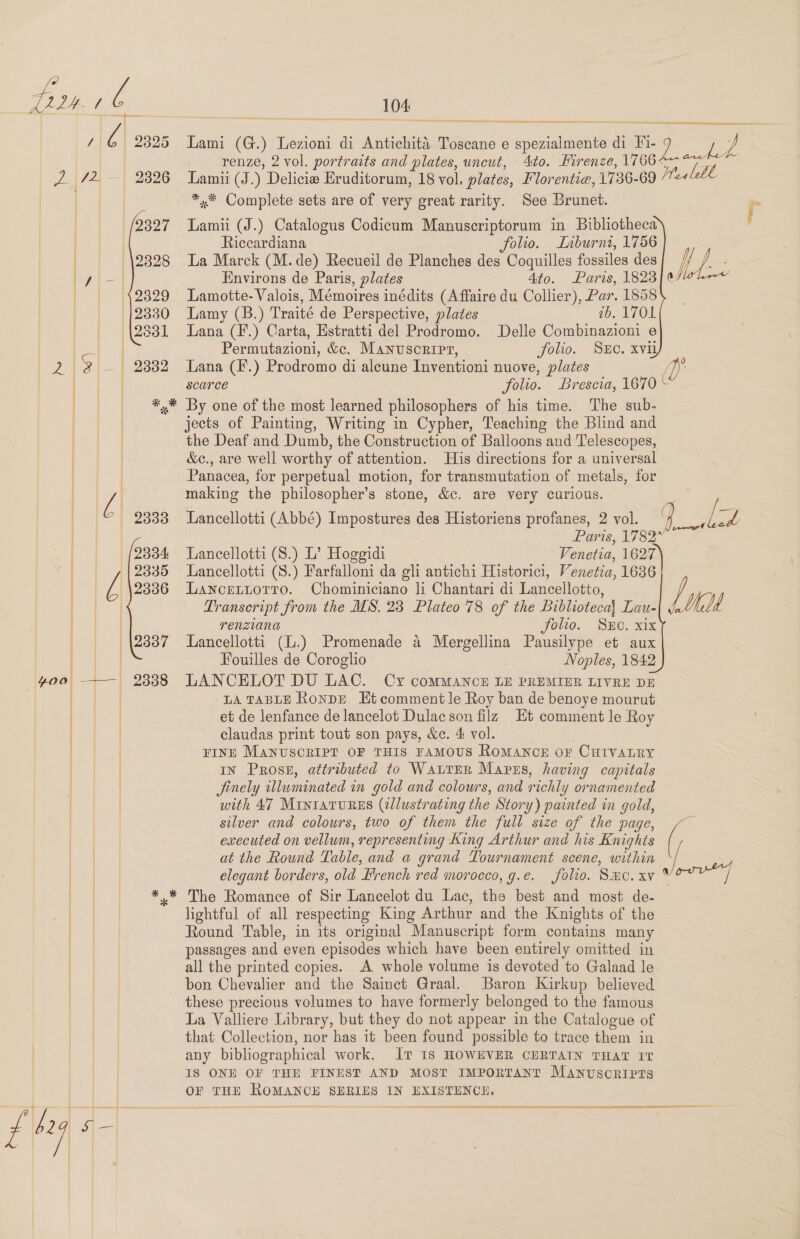 104
2325 Lami (G.) Lezioni di Antichità Toscane e spezialmente di Fi-
renze, 2 vol. portraits and plates, uncut, 4to. Firenze, 1766
2 12 — 2326 Lamii (J.) Deliciæ Eruditorum, 18 vol. plates, Florentiæ, 1736-69
*⁎* Complete sets are of very great rarity. See Brunet.
2327 Lamii (J.) Catalogus Codicum Manuscriptorum in Bibliotheca
Riccardiana folio. Liburni, 1756
2328 La Marck (M. de) Recueil de Planches des Coquilles fossiles des
Environs de Paris, plates 4to. Paris, 1823
2329 Lamotte-Valois, Mémoires inédits (Affaire du Collier), Par. 1858
2330 Lamy (B.) Traité de Perspective, plates ib. 1701
2331 Lana (F.) Carta, Estratti del Prodromo. Delle Combinazioni e
Permutazioni, &c. Manuscript, folio. Sec. xvii
2 2 — 2332 Lana (F.) Prodromo di alcune Inventioni nuove, plates
scarce folio. Brescia, 1670
*⁎* By one of the most learned philosophers of his time. The sub-
jects of Painting, Writing in Cypher, Teaching the Blind and
the Deaf and Dumb, the Construction of Balloons and Telescopes,
&c., are well worthy of attention. His directions for a universal
Panacea, for perpetual motion, for transmutation of metals, for
making the philosopher's stone, &c. are very curious.
6 2333 Lancellotti (Abbé) Impostures des Historiens profanes, 2 vol.
Paris, 1782
2334 Lancellotti (S.) L' Hoggidi Venetia, 1627
2335 Lancellotti (S.) Farfalloni da gli antichi Historici, Venetia, 1636
6 2336 Lancellotto. Chominiciano li Chantari di Lancellotto,
Transcript from the MS. 23 Plateo 78 of the Biblioteca} Lau-
renziana folio. Sec. xix
2337 Lancellotti (L.) Promenade à Mergellina Pausilype et aux
Fouilles de Coroglio Noples, 1842
400 — 2338 LANCELOT DU LAC. Cy commance le premier livre de
la table Ronde Et comment le Roy ban de benoye mourut
et de lenfance de lancelot Dulac son filz Et comment le Roy
claudas print tout son pays, &c. 4 vol.
fine Manuscript of this famous Romance of Chivalry
in Prose, attributed to Walter Mapes, having capitals
finely illuminated in gold and colours, and richly ornamented
with 47 Miniatures (illustrating the Story) painted in gold,
silver and colours, two of them the full size of the page,
executed on vellum, representing King Arthur and his Knights
at the Round Table, and a grand Tournament scene, within
elegant borders, old French red morocco, g.e. folio. Sæc. xv
*⁎* The Romance of Sir Lancelot du Lac, the best and most de-
lightful of all respecting King Arthur and the Knights of the
Round Table, in its original Manuscript form contains many
passages and even episodes which have been entirely omitted in
all the printed copies. A whole volume is devoted to Galaad le
bon Chevalier and the Sainct Graal. Baron Kirkup believed
these precious volumes to have formerly belonged to the famous
La Valliere Library, but they do not appear in the Catalogue of
that Collection, nor has it been found possible to trace them in
any bibliographical work. It is however certain that it
is one of the finest and most important Manuscripts
of the Romance series in existence.